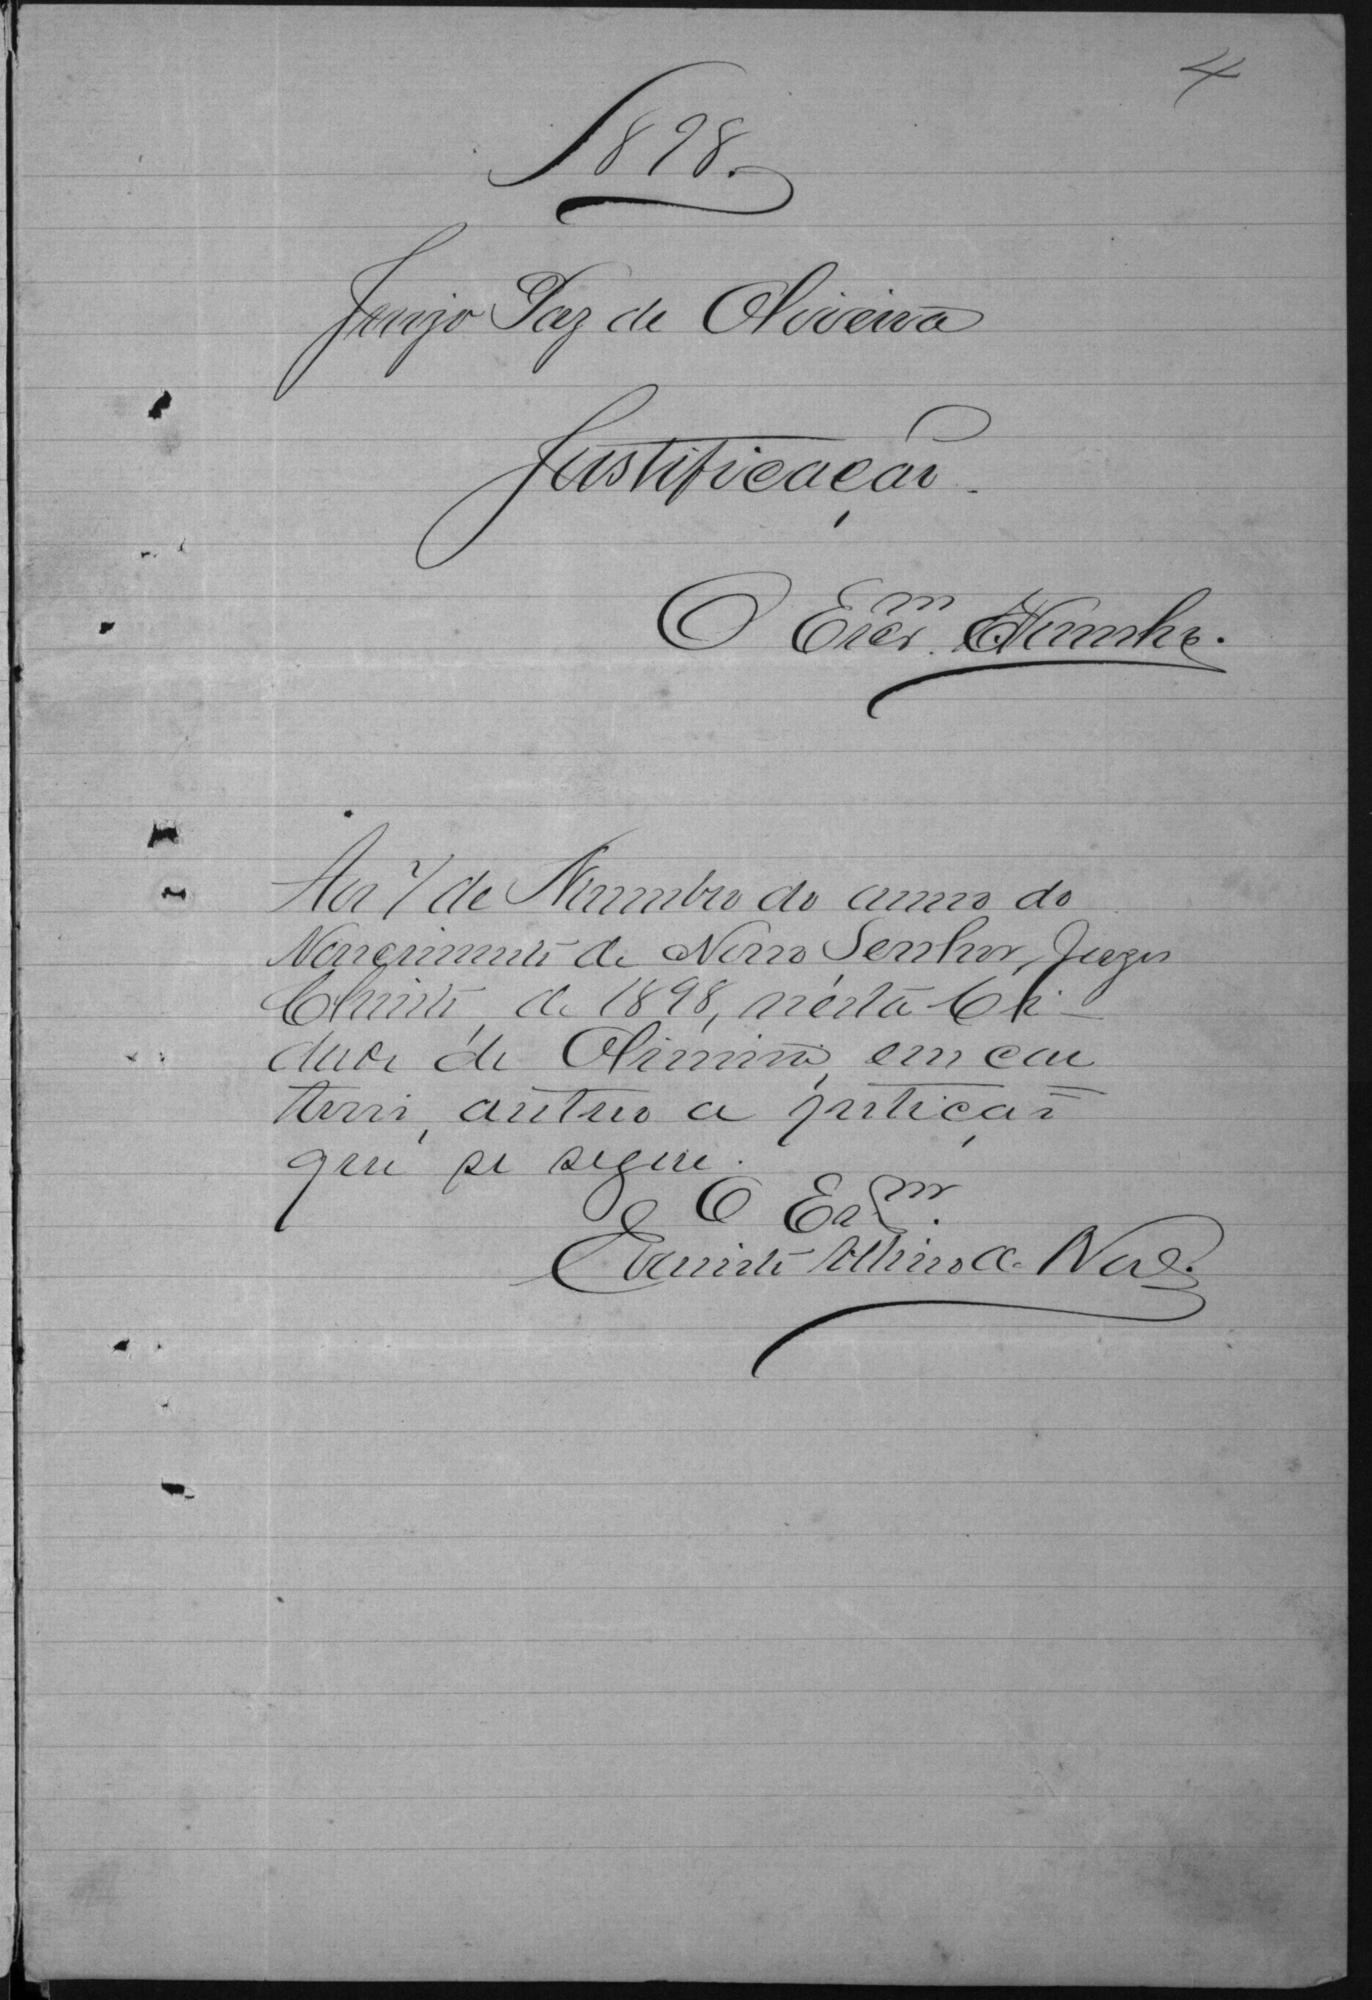 4
1898.
Paz de Oliveira
Justificação.
O Escr.m
Aos 7 de Novembro do anno do
Nascimento de Nosso Senhor Jezus
Christo, de 1898, nesta Ci-
dade de em car
torio, autuo a petição
que se segue.
O Escr.m